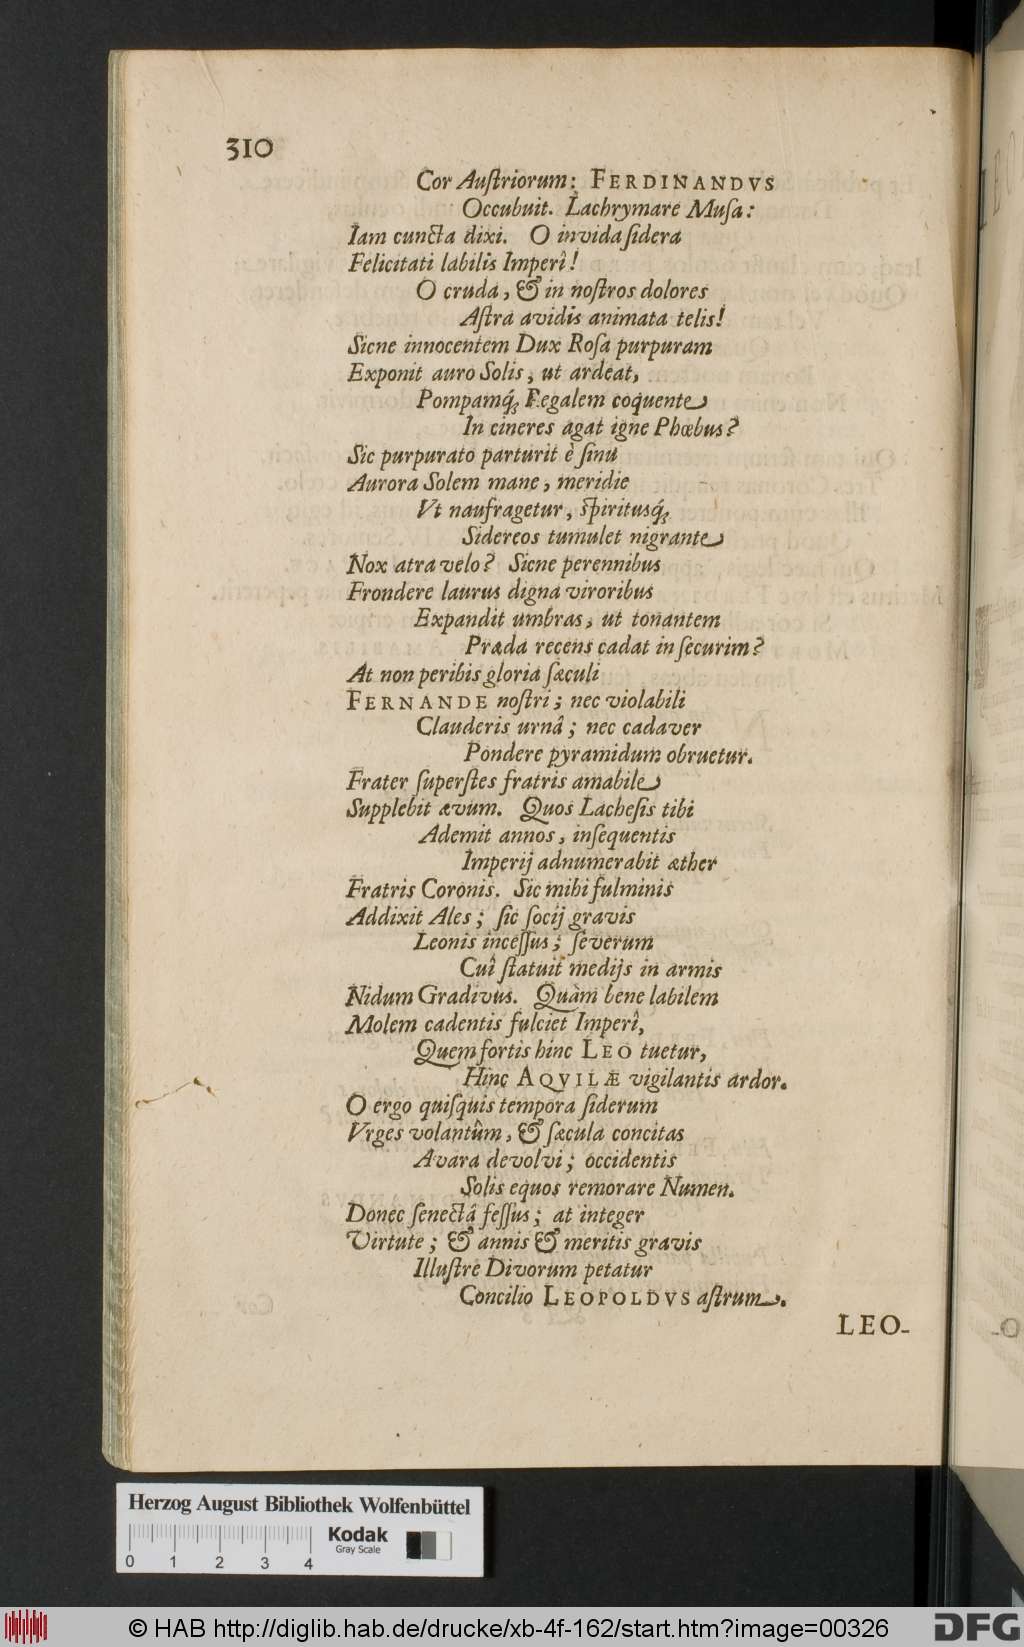 310
Cor Auſtriorum: FERDINANDVS
Occubuit. Lachrymare Muſa:
Iam cuncta dixi. O invida ſidera
Felicitati labilis Imperî!
O cruda, & in noſtros dolores
Aſtra avidis animata telis!
Sicne innocentem Dux Roſa purpuram
Exponit auro Solis, ut ardeat,
Pompamq́; Regalem coquente
In cineres agat igne Phœbus?
Sic purpurato parturit è ſinu
Aurora Solem mane, meridie
Vt naufragetur, ſpiritusq́;
Sidereos tumulet nigrante
Nox atra velo? Sicne perennibus
Frondere laurus digna viroribus
Expandit umbras, ut tonantem
Præda recens cadat in ſecurim?
At non peribis gloria ſæculi
FERNANDE noſtri; nec violabili
Clauderis urnâ; nec cadaver
Pondere pyramidum obruetur.
Frater ſuperſtes fratris amabile
Supplebit ævum. Quos Lacheſis tibi
Ademit annos, inſequentis
Imperij adnumerabit æther
Fratris Coronis. Sic mihi fulminis
Addixit Ales; ſic ſocij gravis
Leonis inceſſus; ſeverum
Cuî ſtatuit medijs in armis
Nidum Gradivus. Quàm bene labilem
Molem cadentis fulciet Imperî,
Quem fortis hinc LEO tuetur,
Hinc AQVILÆ vigilantis ardor.
O ergo quiſquis tempora ſiderum
Vrges volantûm, & ſæcula concitas
Avara devolvi; occidentis
Solis equos remorare Numen.
Donec ſenectâ feſſus; at integer
Virtute; & annis & meritis gravis
Illuſtre Divorum petatur
Concilio LEOPOLDVS aſtrum.
LEO-
Herzog August Bibliothek Wolfenbüttel
0 1 2 3 4
Kodak
Gray Scale
© HAB http://diglib.hab.de/drucke/xb-4f-162/start.htm?image=00326
DFG